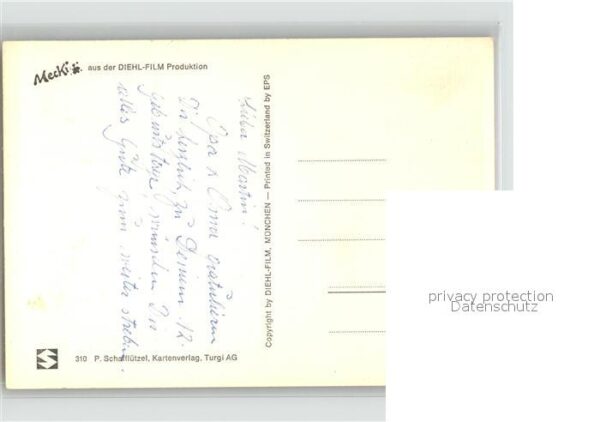 Mecki aus der DIEHL-FILM Produktion
Lieber Martin!
Opa & Oma gratulieren
Dir herzlich, zu Deinem 12.
Geburtstage, wünschen Dir
alles Gute zum weiter streben.
Copyright by DIEHL-FILM, MÜNCHEN — Printed in Switzerland by EPS
310 P. Schafflützel, Kartenverlag, Turgi AG
privacy protection
Datenschutz